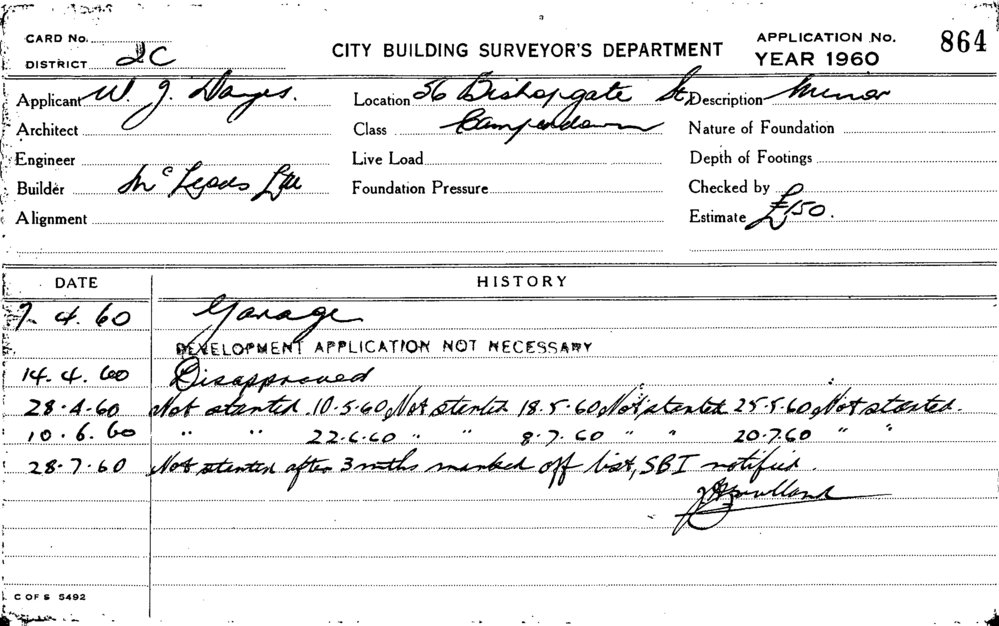 CARD No.
DISTRICT 2C
CITY BUILDING SURVEYOR'S DEPARTMENT
APPLICATION No. 864
YEAR 1960
Applicant W. J. Location 56 Bishopgate St. Description Minor
Architect Class Camperdown Nature of Foundation
Engineer Live Load Depth of Footings
Builder Mc Ltd Foundation Pressure Checked by
Alignment Estimate £150.
DATE HISTORY
7. 4. 60 Garage
DEVELOPMENT APPLICATION NOT NECESSARY
14. 4. 60 Disapproved
28.4.60 Not started 10.5.60 Not started 18.5.60 Not started 25.5.60 Not started.
10.6.60 " " 22.6.60 " " 8.7.60 " " 20.7.60 " "
28.7.60 Not started after 3 mths marked off list, SBI notified.
C OF S 5492